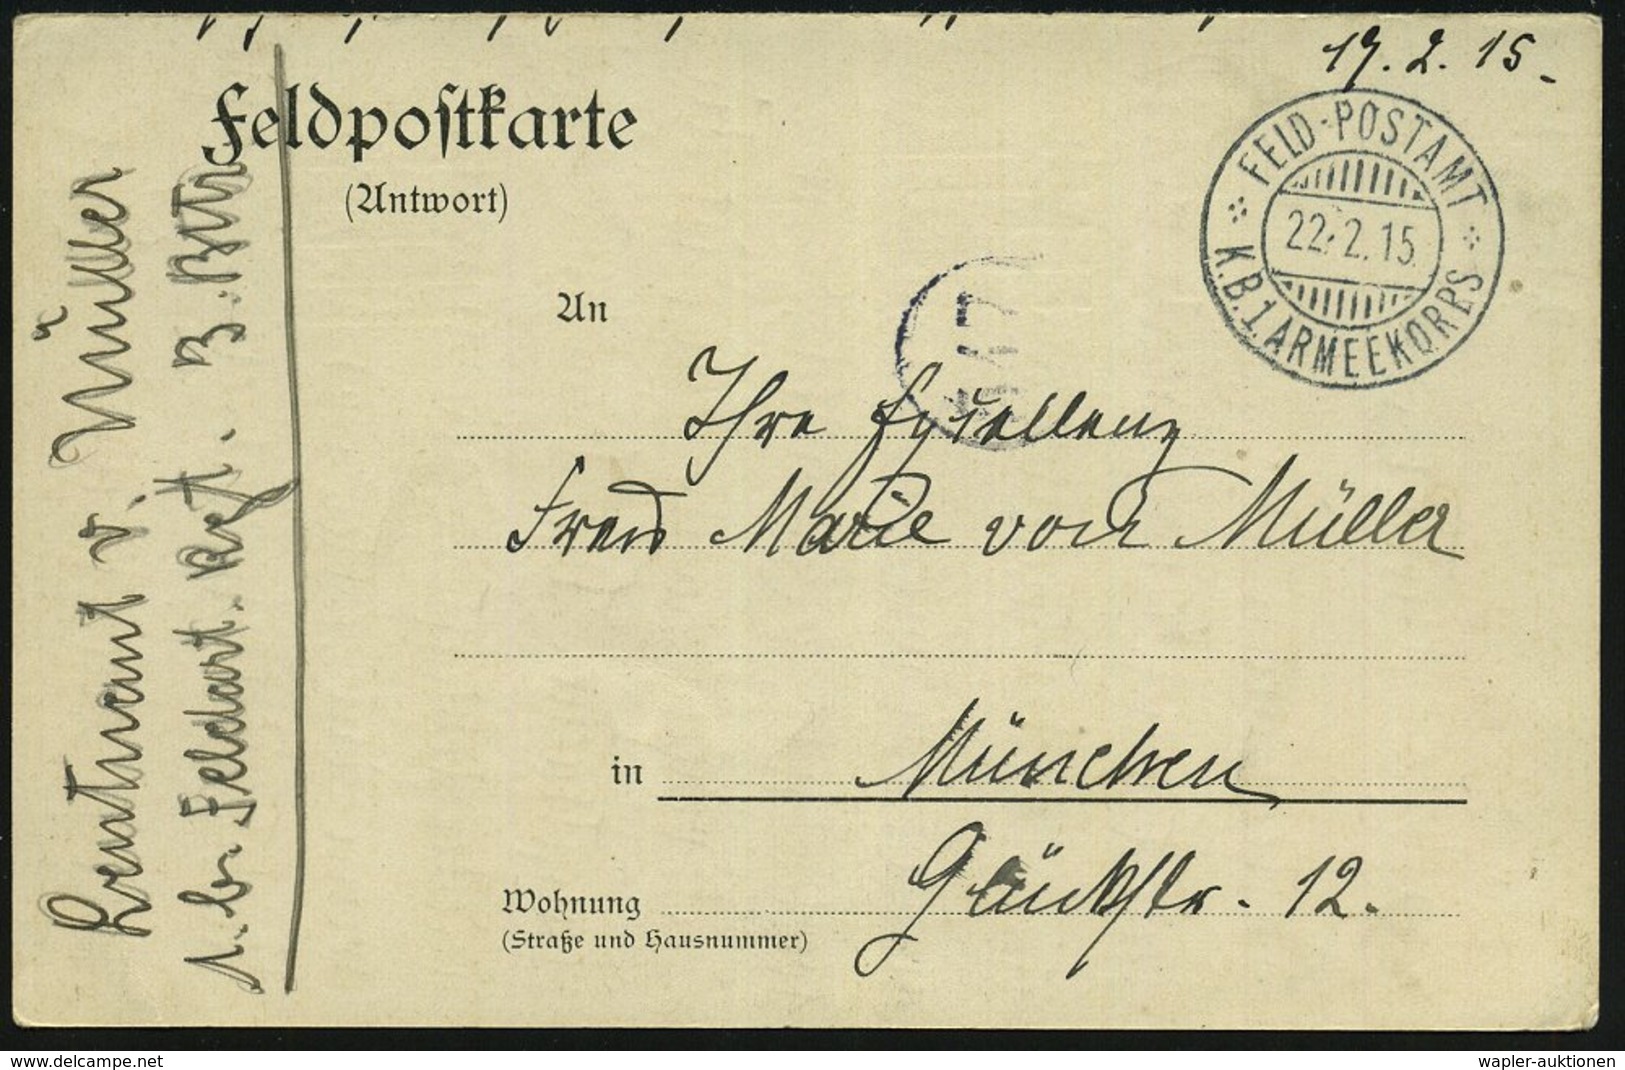 17. 2. 15.
Feldpostkarte
(Antwort)
FELD-POSTAMT
22.2.15.
K.B.1.ARMEEKORPS
An
Ihre Exzellenz
Frau Marie von Müller
in München
Wohnung Glückstr. 12.
(Straße und Hausnummer)
Leutnant v. Müller
1. b. Feldart. Rgt. 3. Bttr.
delcampe.net
wapler-auktionen